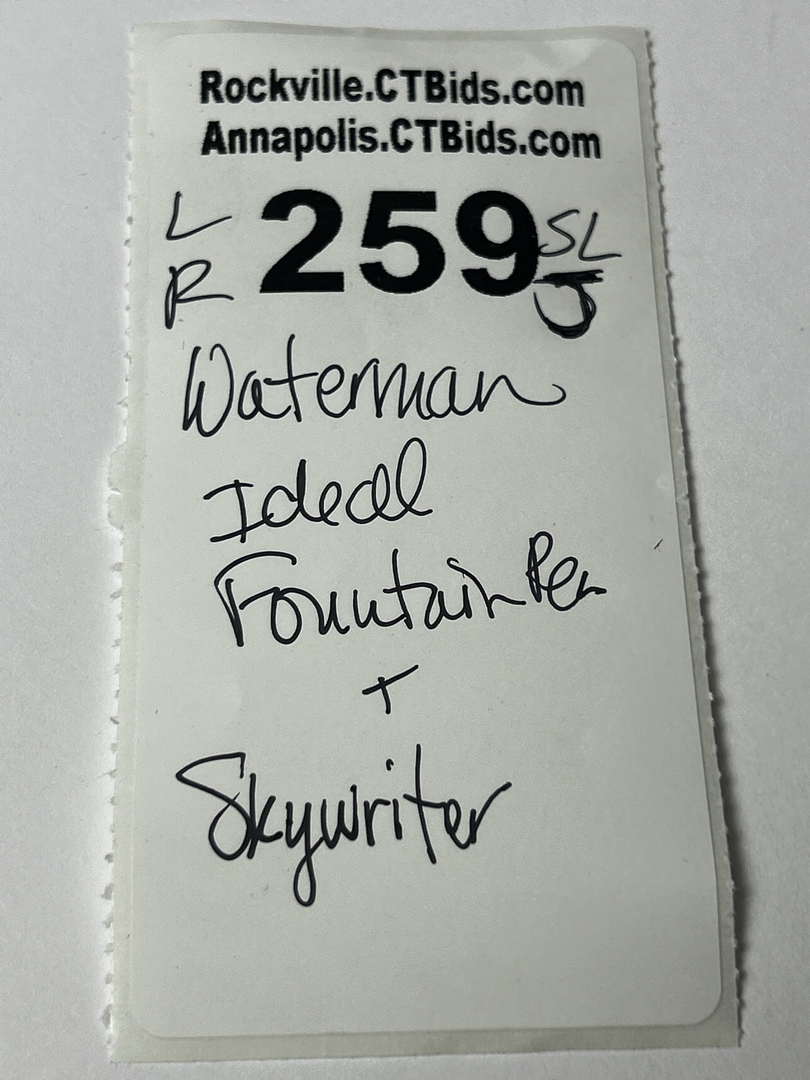 Rockville.CTBids.com
Annapolis.CTBids.com
L 259 SL
R J
Waterman
Ideal
Fountain Pen
+
Skywriter